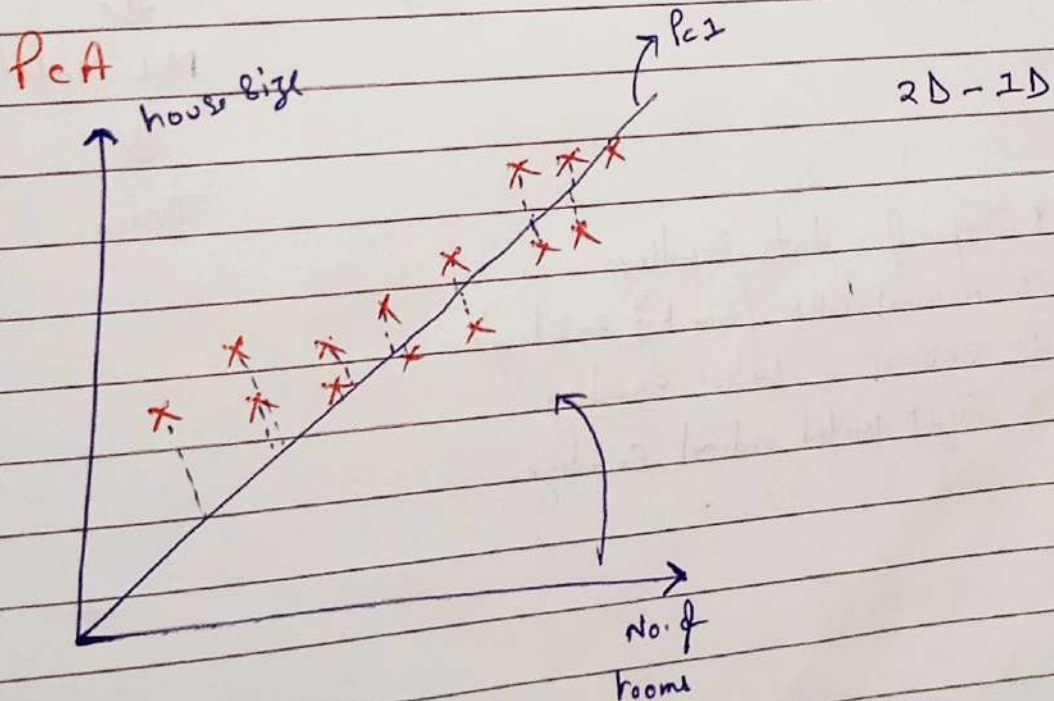 PcA
house size
Pc1
2D - 1D
No. of
rooms